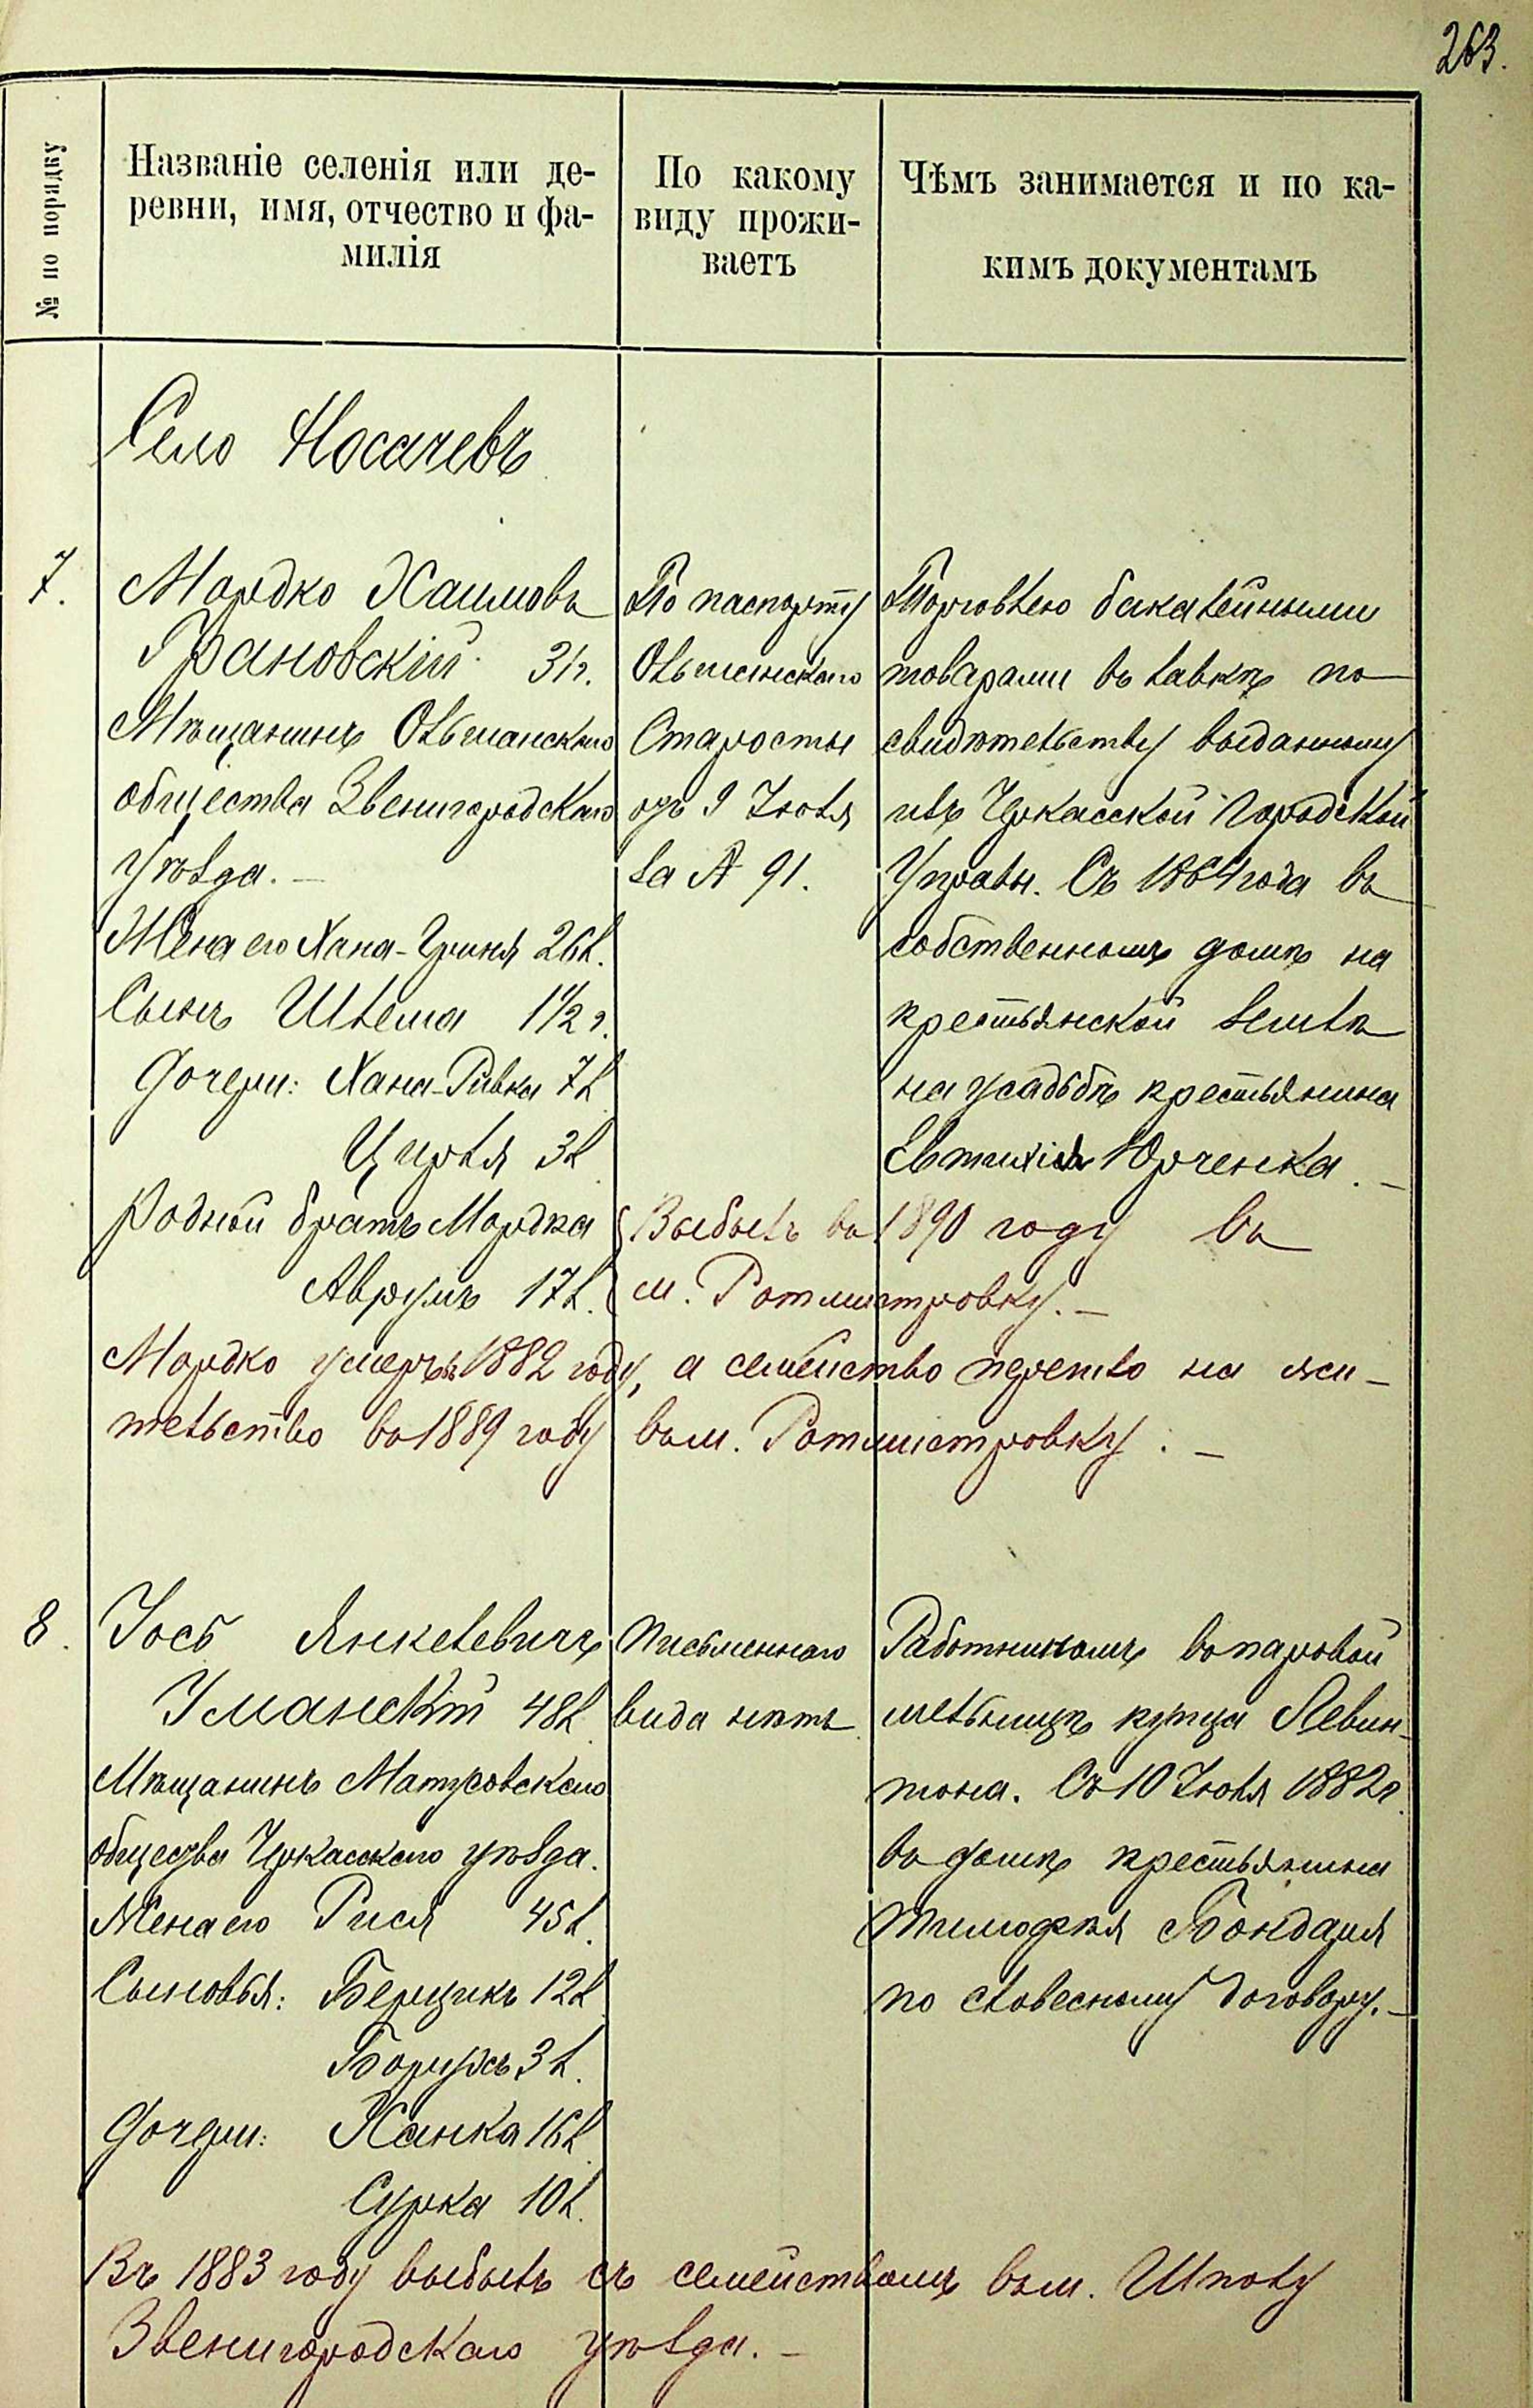 263.
№ по порядку
Названіе селенія или де-
ревни, имя, отчество и фа-
милія
По какому
виду прожи-
ваетъ
Чѣмъ занимается и по ка-
кимъ документамъ
Село Носачевъ
7.
Мордко Хаимовъ
Грановскій 31 г.
Мѣщанинъ Ольшанскаго
общества Звенигородскаго
уѣзда. —
Жена его Хана-Груня 26 л.
Сынъ Шлема 1 1/2 г.
Дочери: Хана-Ривка 7 л
Цирля 3 л
Родной братъ Мордка
Аврумъ 17 л.
По паспорту
Ольшанскаго
Старосты
отъ 9 Іюля
за № 91.
Торговлею бакалейными
товарами въ лавкѣ по
свидѣтельству выданному
изъ Черкасской Городской
Управы. Съ 1864 года въ
собственномъ домѣ на
крестьянской землѣ
на усадьбѣ крестьянина
Евтихія Юрченка. —
Выбылъ въ 1890 году въ
м. Ротмистровку. —
Мордко умеръ въ 1882 году, а семейство перешло на жи-
тельство въ 1889 году въ м. Ротмистровку. —
8.
Іось Янкелевичъ
Уманскій 48 л
Мѣщанинъ Матусовскаго
общества Черкасскаго уѣзда.
Жена его Рися 45 л.
Сыновья: Берцикъ 12 л
Борухъ 3 л.
Дочери: Ханка 16 л
Сурка 10 л.
Письменнаго
вида нѣтъ
Работникомъ въ паровой
мельницѣ купца Левин-
тона. Съ 10 Іюля 1882 г.
въ домѣ крестьянина
Тимофѣя Бондаря
по словесному договору. —
Въ 1883 году выбылъ съ семействомъ въ м. Шполу
Звенигородскаго уѣзда. —